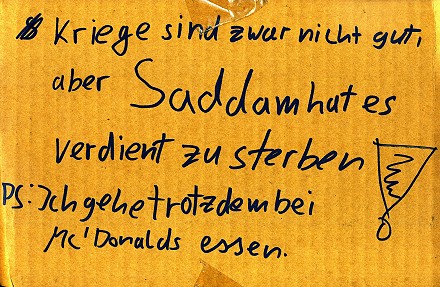 Kriege sind zwar nicht gut,
aber Saddam hat es
verdient zu sterben
PS: Ich gehe trotzdem bei
Mc'Donalds essen.